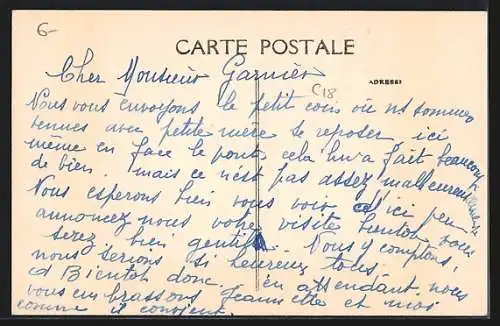 6-
CARTE POSTALE
ADRESSE
C18
Cher Monsieur Garnier
Nous vous envoyons le petit coin où nt sommes
venues avec petite mère se reposer ici
même en face le pont cela lui a fait beaucoup
de bien. mais ce n'est pas assez malheureusement
Nous esperons bien vous voir d'ici peu
annoncez nous votre visite bientôt vous
serez bien gentil. Nous y comptons,
nous serions si heureux tous.
à Bientot donc. en attendant nous
vous embrassons Jeannette et moi
comme il convient.